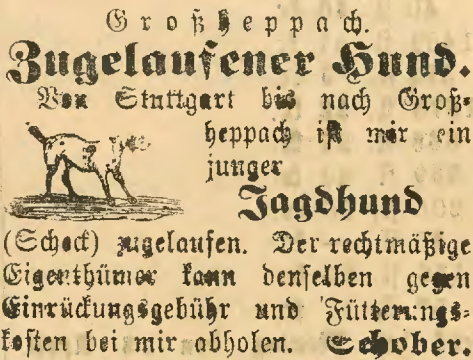 Großheppach.
Zugelaufener Hund.
Von Stuttgart bis nach Groß-
heppach ist mir ein
junger
Jagdhund
(Scheck) zugelaufen. Der rechtmäßige
Eigenthümer kann denselben gegen
Einrückungsgebühr und Fütterungs-
kosten bei mir abholen. Schober.